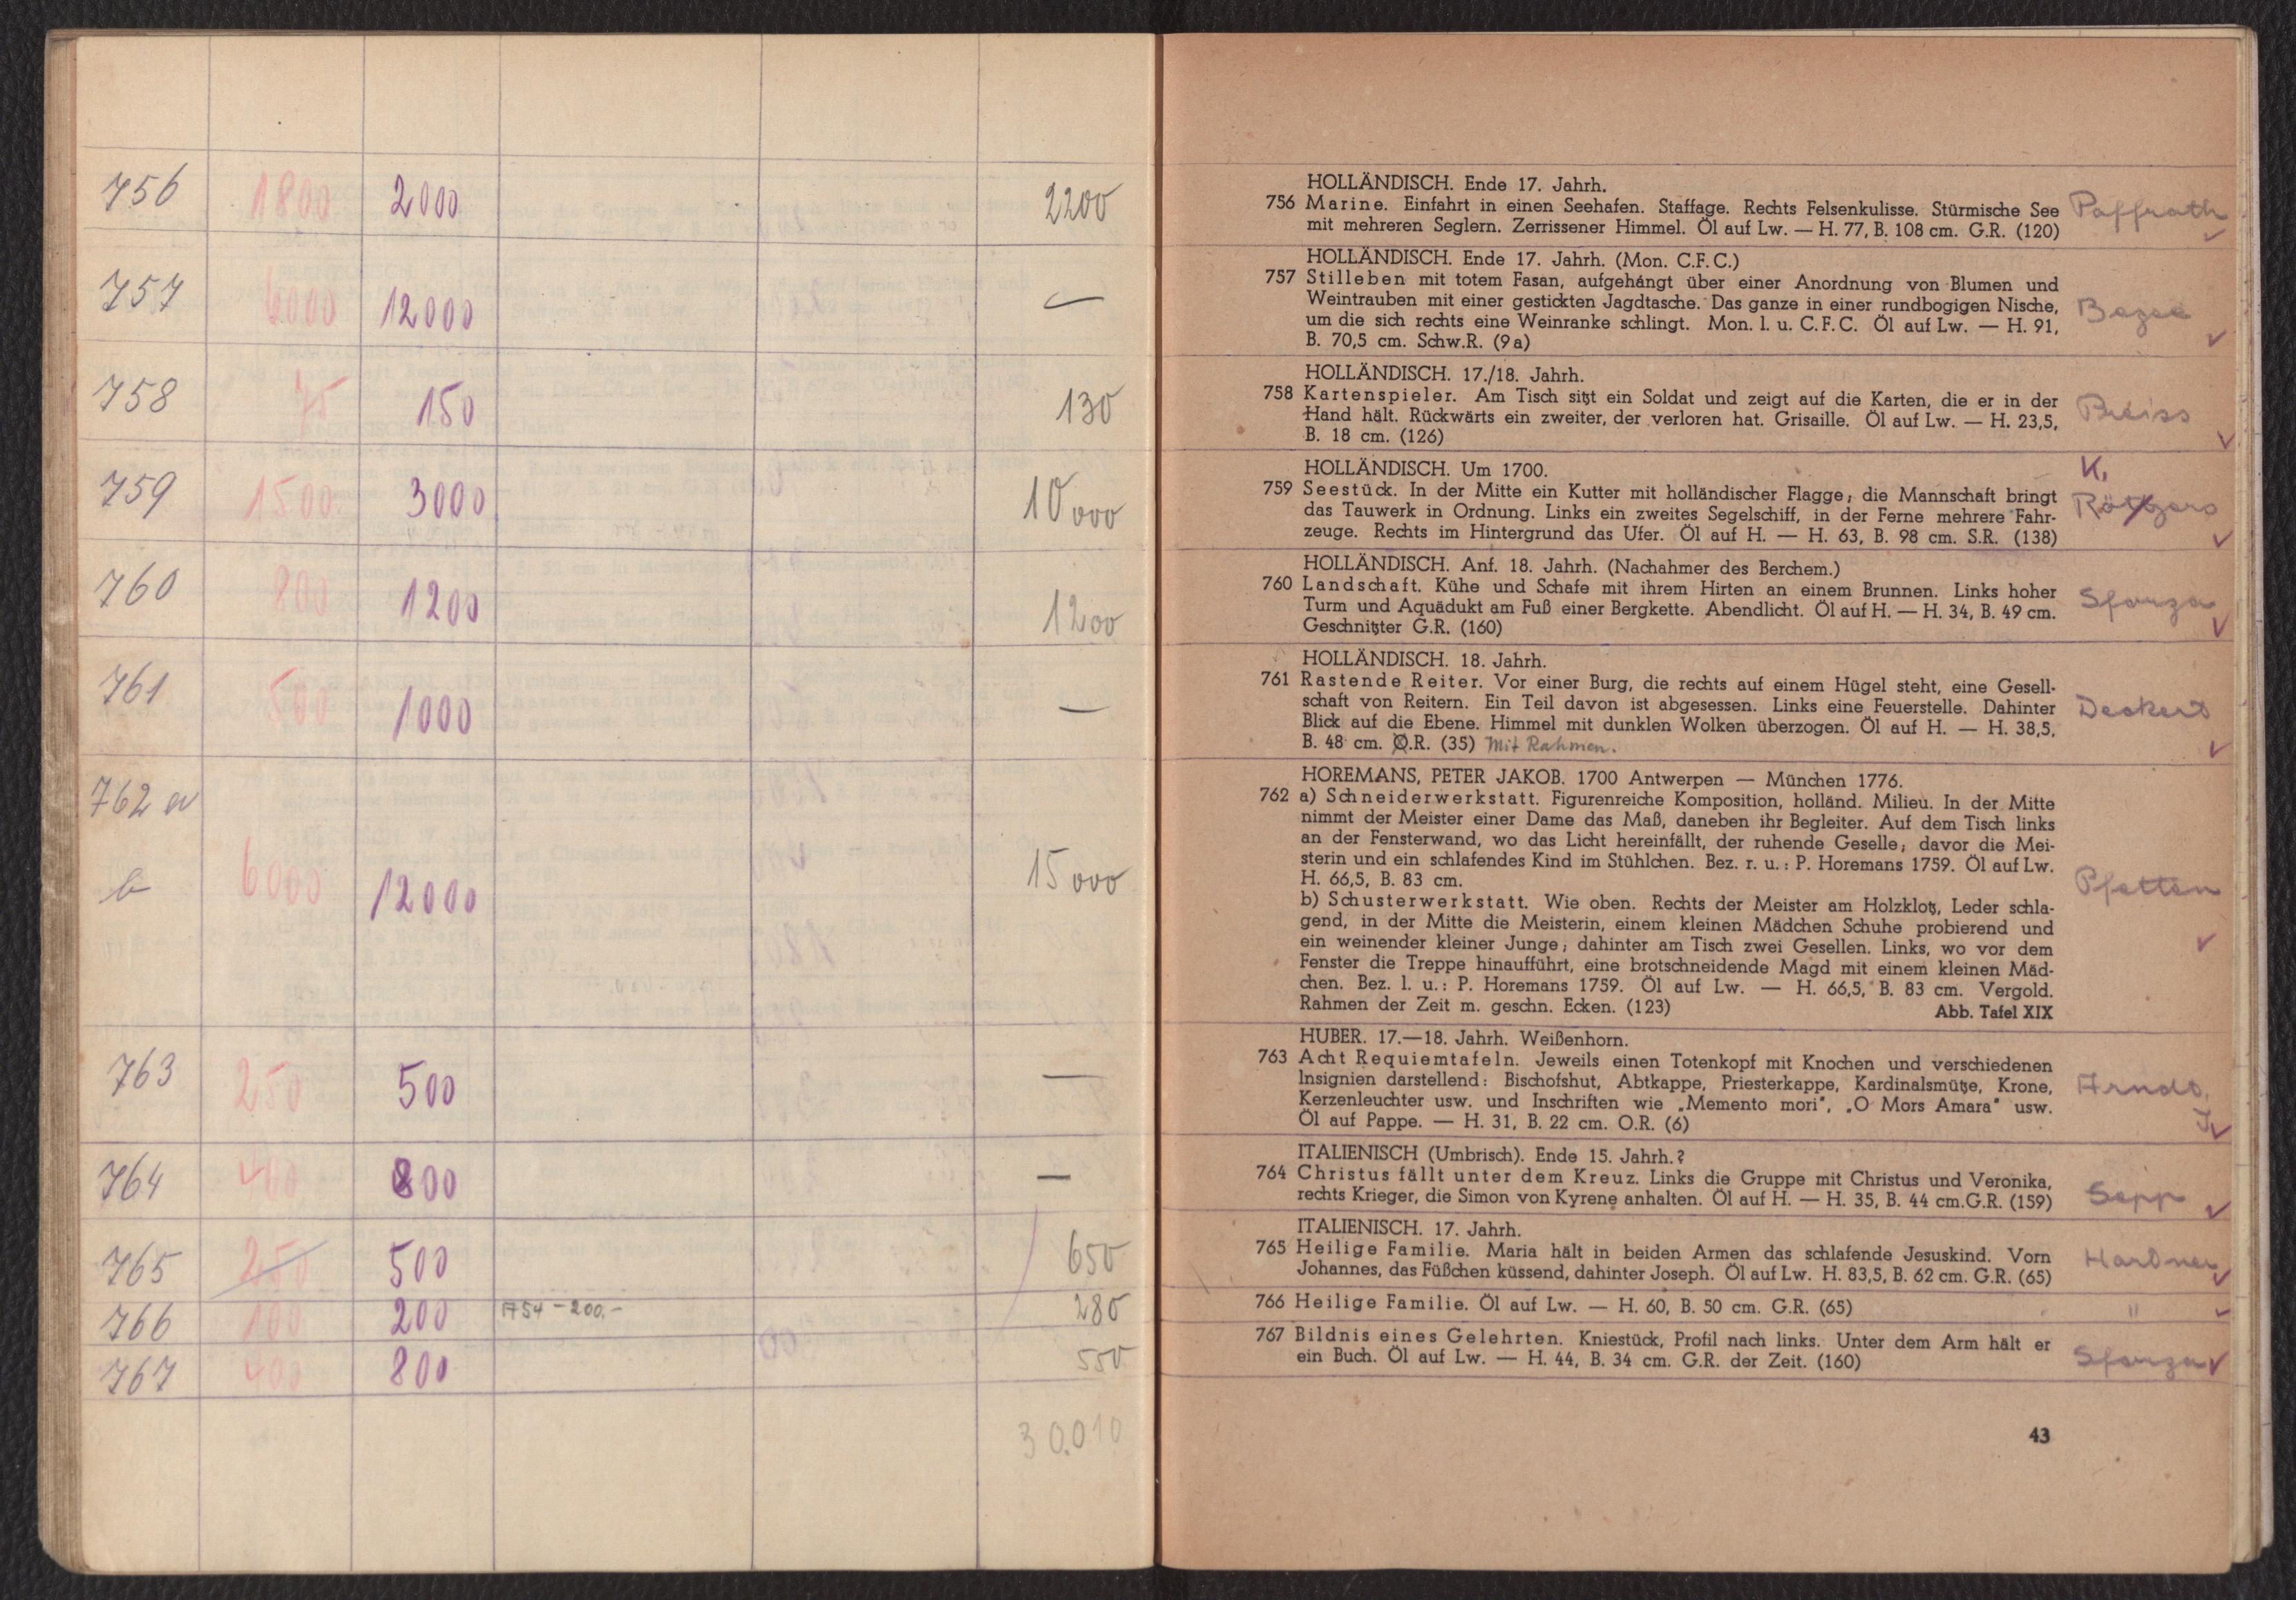 756 1800 2000 2200
757 6000 12000 —
758 75 150 130
759 1500 3000 10000
760 800 1200 1200
761 500 1000 —
762 a
b 6000 12000 15000
763 250 500 —
764 400 800 —
765 250 500 650
766 100 200 1754 - 200.- 280
767 400 800 550
30.010
HOLLÄNDISCH. Ende 17. Jahrh.
756 Marine. Einfahrt in einen Seehafen. Staffage. Rechts Felsenkulisse. Stürmische See Paffrath
mit mehreren Seglern. Zerrissener Himmel. Öl auf Lw. — H. 77, B. 108 cm. G.R. (120)
HOLLÄNDISCH. Ende 17. Jahrh. (Mon. C.F.C.)
757 Stilleben mit totem Fasan, aufgehängt über einer Anordnung von Blumen und
Weintrauben mit einer gestickten Jagdtasche. Das ganze in einer rundbogigen Nische,
um die sich rechts eine Weinranke schlingt. Mon. l. u. C.F.C. Öl auf Lw. — H. 91,
B. 70,5 cm. Schw.R. (9a)
HOLLÄNDISCH. 17./18. Jahrh.
758 Kartenspieler. Am Tisch sitzt ein Soldat und zeigt auf die Karten, die er in der
Hand hält. Rückwärts ein zweiter, der verloren hat. Grisaille. Öl auf Lw. — H. 23,5,
B. 18 cm. (126)
HOLLÄNDISCH. Um 1700. K.
759 Seestück. In der Mitte ein Kutter mit holländischer Flagge; die Mannschaft bringt
das Tauwerk in Ordnung. Links ein zweites Segelschiff, in der Ferne mehrere Fahr-
zeuge. Rechts im Hintergrund das Ufer. Öl auf H. — H. 63, B. 98 cm. S.R. (138)
HOLLÄNDISCH. Anf. 18. Jahrh. (Nachahmer des Berchem.)
760 Landschaft. Kühe und Schafe mit ihrem Hirten an einem Brunnen. Links hoher
Turm und Aquädukt am Fuß einer Bergkette. Abendlicht. Öl auf H. — H. 34, B. 49 cm. Sforza
Geschnitzter G.R. (160)
HOLLÄNDISCH. 18. Jahrh.
761 Rastende Reiter. Vor einer Burg, die rechts auf einem Hügel steht, eine Gesell-
schaft von Reitern. Ein Teil davon ist abgesessen. Links eine Feuerstelle. Dahinter Deckert
Blick auf die Ebene. Himmel mit dunklen Wolken überzogen. Öl auf H. — H. 38,5,
B. 48 cm. O.R. (35) Mit Rahmen.
HOREMANS, PETER JAKOB. 1700 Antwerpen — München 1776.
762 a) Schneiderwerkstatt. Figurenreiche Komposition, holländ. Milieu. In der Mitte
nimmt der Meister einer Dame das Maß, daneben ihr Begleiter. Auf dem Tisch links
an der Fensterwand, wo das Licht hereinfällt, der ruhende Geselle; davor die Mei-
sterin und ein schlafendes Kind im Stühlchen. Bez. r. u.: P. Horemans 1759. Öl auf Lw.
H. 66,5, B. 83 cm. Pfetten
b) Schusterwerkstatt. Wie oben. Rechts der Meister am Holzklotz, Leder schla-
gend, in der Mitte die Meisterin, einem kleinen Mädchen Schuhe probierend und
ein weinender kleiner Junge; dahinter am Tisch zwei Gesellen. Links, wo vor dem
Fenster die Treppe hinaufführt, eine brotschneidende Magd mit einem kleinen Mäd-
chen. Bez. l. u.: P. Horemans 1759. Öl auf Lw. — H. 66,5, B. 83 cm. Vergold.
Rahmen der Zeit m. geschn. Ecken. (123) Abb. Tafel XIX
HUBER. 17.—18. Jahrh. Weißenhorn.
763 Acht Requiemtafeln. Jeweils einen Totenkopf mit Knochen und verschiedenen
Insignien darstellend: Bischofshut, Abtkappe, Priesterkappe, Kardinalsmütze, Krone, Arndt,
Kerzenleuchter usw. und Inschriften wie „Memento mori", „O Mors Amara" usw. J
Öl auf Pappe. — H. 31, B. 22 cm. O.R. (6)
ITALIENISCH (Umbrisch). Ende 15. Jahrh.?
764 Christus fällt unter dem Kreuz. Links die Gruppe mit Christus und Veronika,
rechts Krieger, die Simon von Kyrene anhalten. Öl auf H. — H. 35, B. 44 cm.G.R. (159) Sepp
ITALIENISCH. 17. Jahrh.
765 Heilige Familie. Maria hält in beiden Armen das schlafende Jesuskind. Vorn Hardner
Johannes, das Füßchen küssend, dahinter Joseph. Öl auf Lw. H. 83,5, B. 62 cm. G.R. (65)
766 Heilige Familie. Öl auf Lw. — H. 60, B. 50 cm. G.R. (65) "
767 Bildnis eines Gelehrten. Kniestück, Profil nach links. Unter dem Arm hält er
ein Buch. Öl auf Lw. — H. 44, B. 34 cm. G.R. der Zeit. (160) Sforza
43